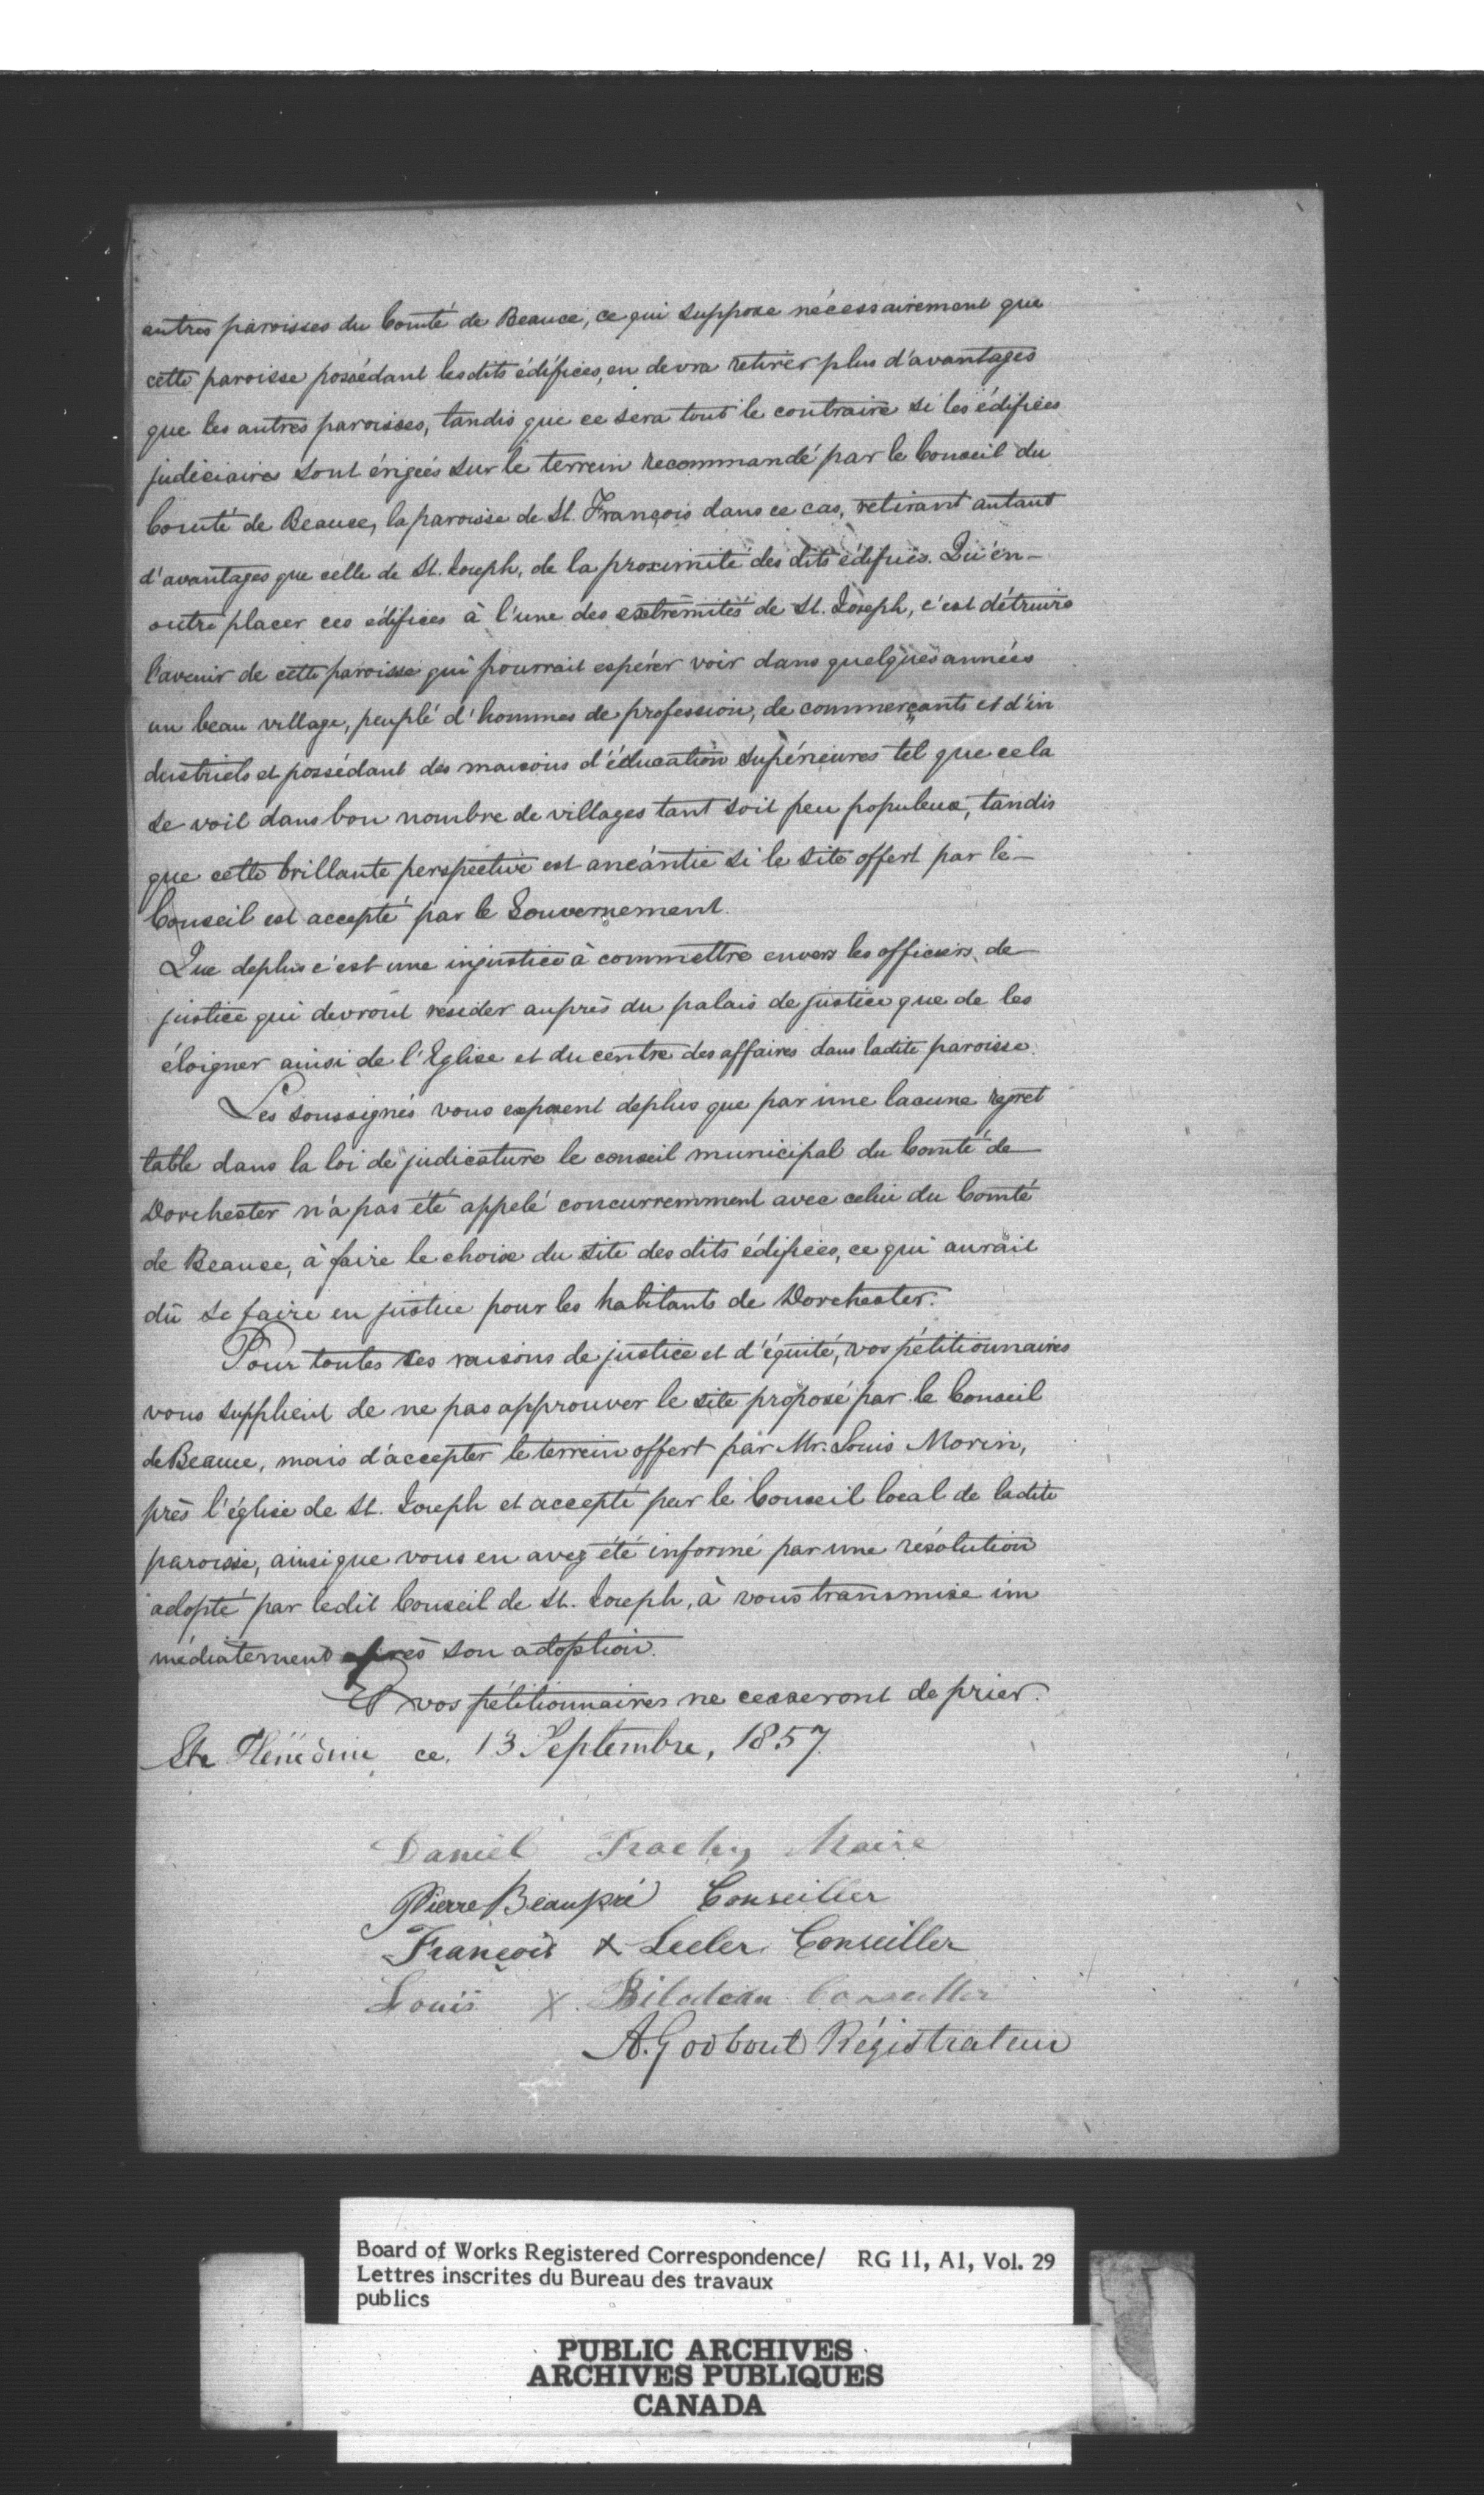 autres paroisses du Comté de Beauce, ce qui suppose nécessairement que
cette paroisse possédant lesdits édifices, en devra retirer plus d'avantages
que les autres paroisses, tandis que ce sera tout le contraire si les édifices
judiciaires sont érigées sur le terrein recommandé par le Conseil du
Comté de Beauce, la paroisse de St. François dans ce cas, retirant autant
d'avantages que celle de St. Joseph, de la proximité des dits édifices. Qu'en-
outre placer ces édifices à l'une des extrêmités de St. Joseph, c'est détruire
l'avenir de cette paroisse qui pourrait espérer voir dans quelques années
un beau village, peuplé d'hommes de profession, de commerçants et d'in
dustriels et possédant des maisons d'éducation supérieures tel que cela
se voit dans bon nombre de villages tant soit peu populeux, tandis
que cette brillante perspective est anéantie si le site offert par le-
Conseil est accepté par le Gouvernement.
Que deplus c'est une injustice à commettre envers les officiers de
justice qui devront résider auprès du palais de justice que de les
éloigner ainsi de l'Eglise et du centre des affaires dans ladite paroisse.
Les soussignés vous exposent deplus que par une lacune regret
table dans la loi de judicature le conseil municipal du Comté de
Dorchester n'a pas été appelé concurremment avec celui du Comté
de Beauce, à faire le choix du site des dits édifices, ce qui aurait
dû se faire en justice pour les habitants de Dorchester.
Pour toutes ces raisons de justice et d'équité, vos pétitionnaires
vous supplient de ne pas approuver le site proposé par le Conseil
de Beauce, mais d'accepter le terrein offert par Mr. Louis Morin,
près l'église de St. Joseph et accepté par le Conseil local de ladite
paroisse, ainsi que vous en avez été informé par une résolution
adopté par ledit Conseil de St. Joseph, à vous transmise im
médiatement après son adoption.
Et vos pétitionnaires ne cesseront de prier.
Ste Hénédine ce, 13 Septembre, 1857.
Daniel Maire
Pierre Beaupré Conseiller
François X Lecler Conseiller
Louis X Bilodeau Conseiller
A. Godbout Régistrateur
Board of Works Registered Correspondence/ RG 11, A1, Vol. 29
Lettres inscrites du Bureau des travaux
publics
PUBLIC ARCHIVES
ARCHIVES PUBLIQUES
CANADA